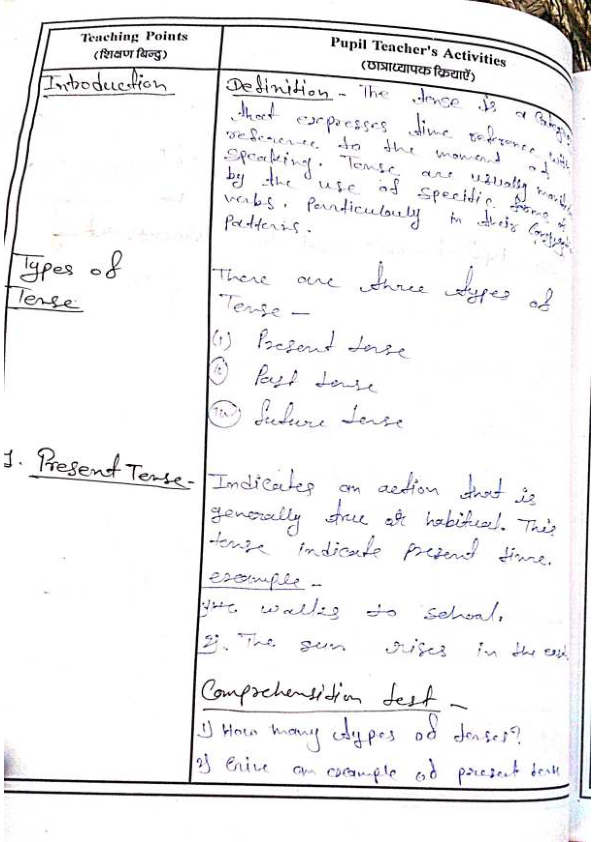 Teaching Points
(शिक्षण बिन्दु)
Pupil Teacher's Activities
(छात्राध्यापक क्रियाएँ)
Introduction
Definition - The tense is a
that expresses time reference with
reference to the moment of
speaking. Tense are usually
by the use of specific forms of
verbs. Particulouly in their
Patterns.
Types of
Tense
There are three types of
Tense -
(i) Present tense
(ii) Past tense
(iii) future tense
1. Present Tense -
Indicates an action that is
generally true or habitual. This
tense indicate present time.
example -
1. He walks to school.
2. The sun rises in the east
Comprehensition test -
1) How many types of tenses?
2) Give an example of present tense